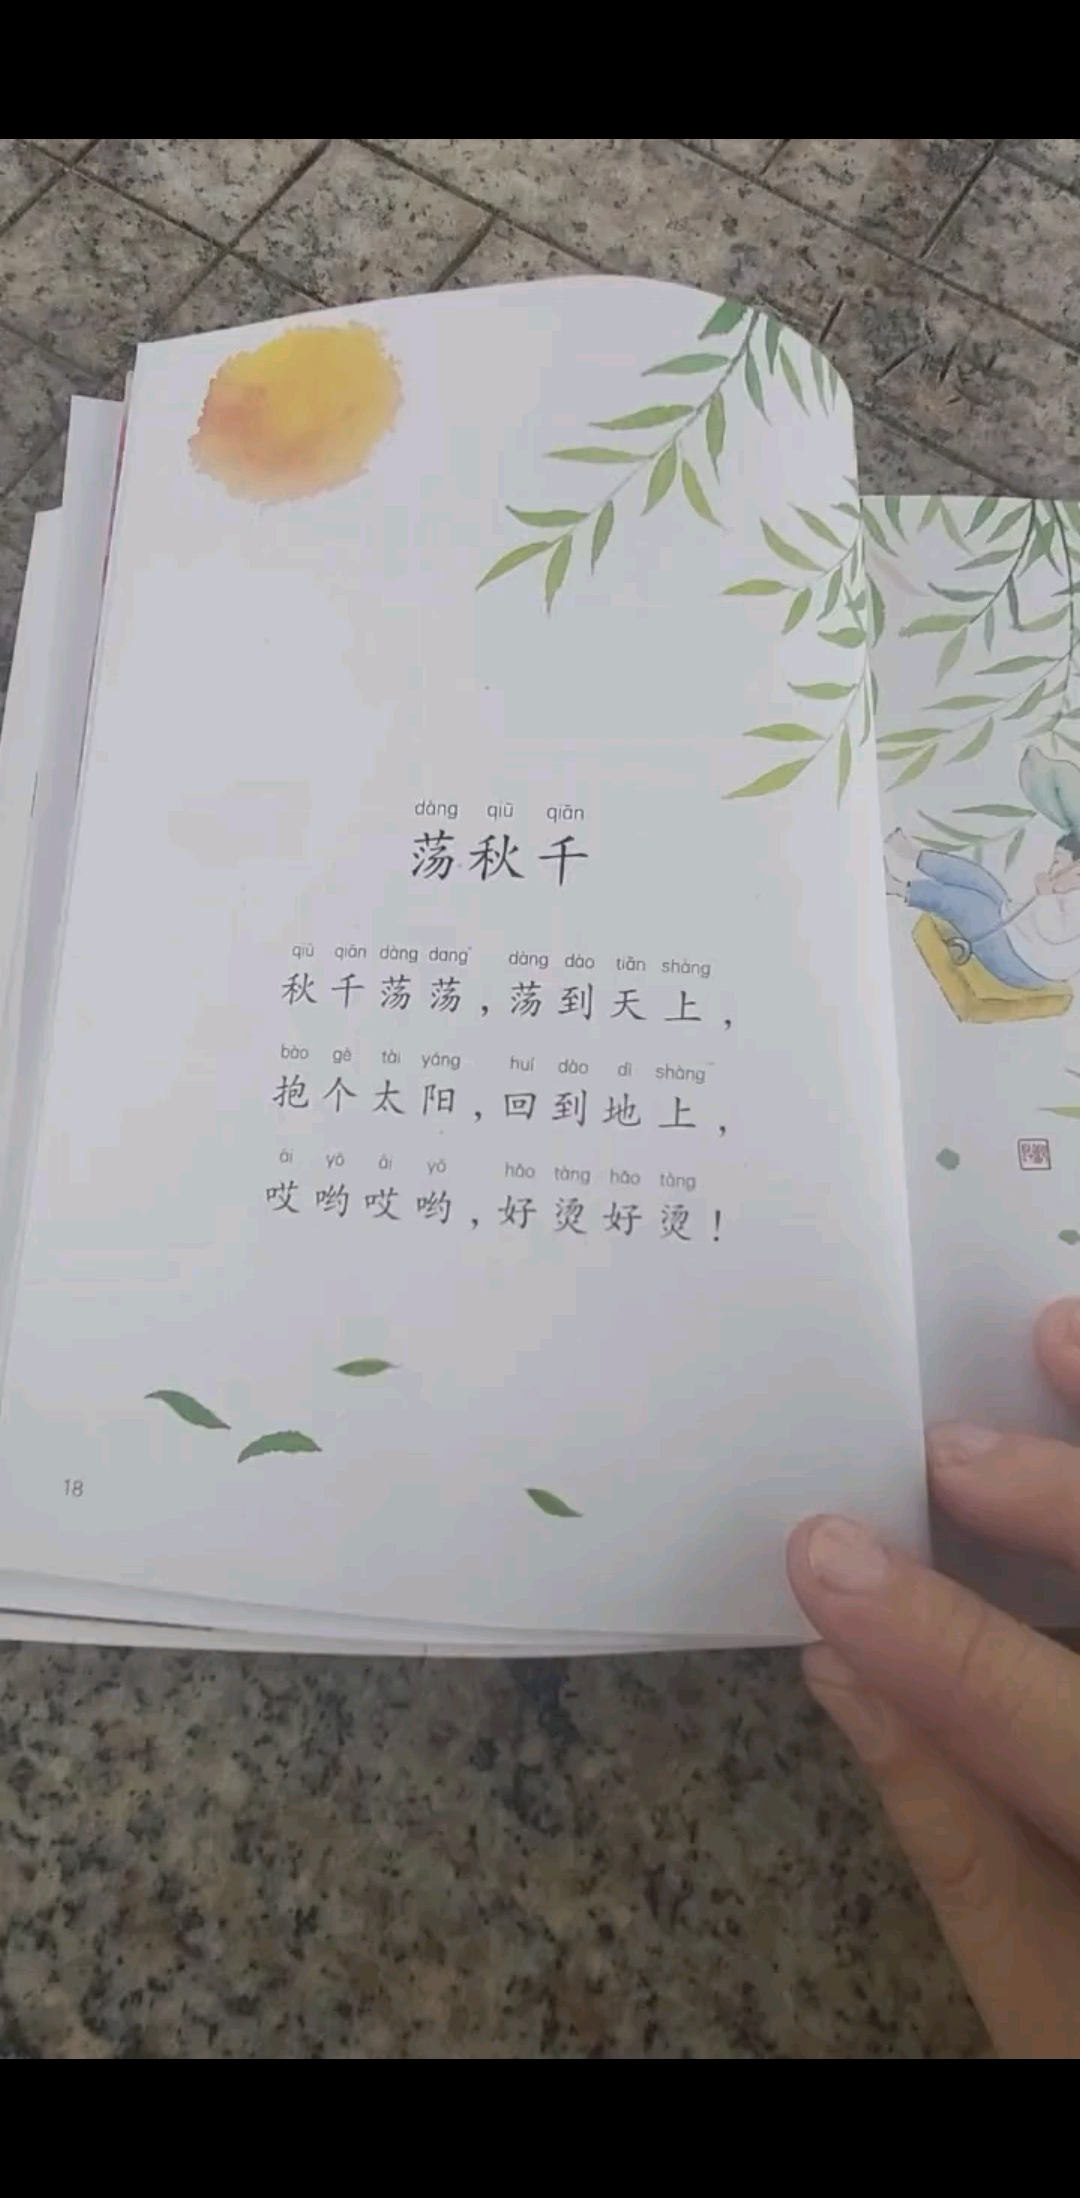 dàng qiū qiān
荡秋千
qiū qiān dàng dang dàng dào tiān shàng
秋千荡荡，荡到天上，
bào gè tài yáng huí dào dì shàng
抱个太阳，回到地上，
āi yō āi yō hǎo tàng hǎo tàng
哎哟哎哟，好烫好烫！
18